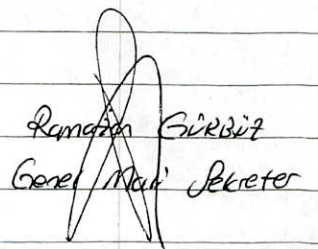 Ramazan GÜRBÜZ
Genel Mali Sekreter